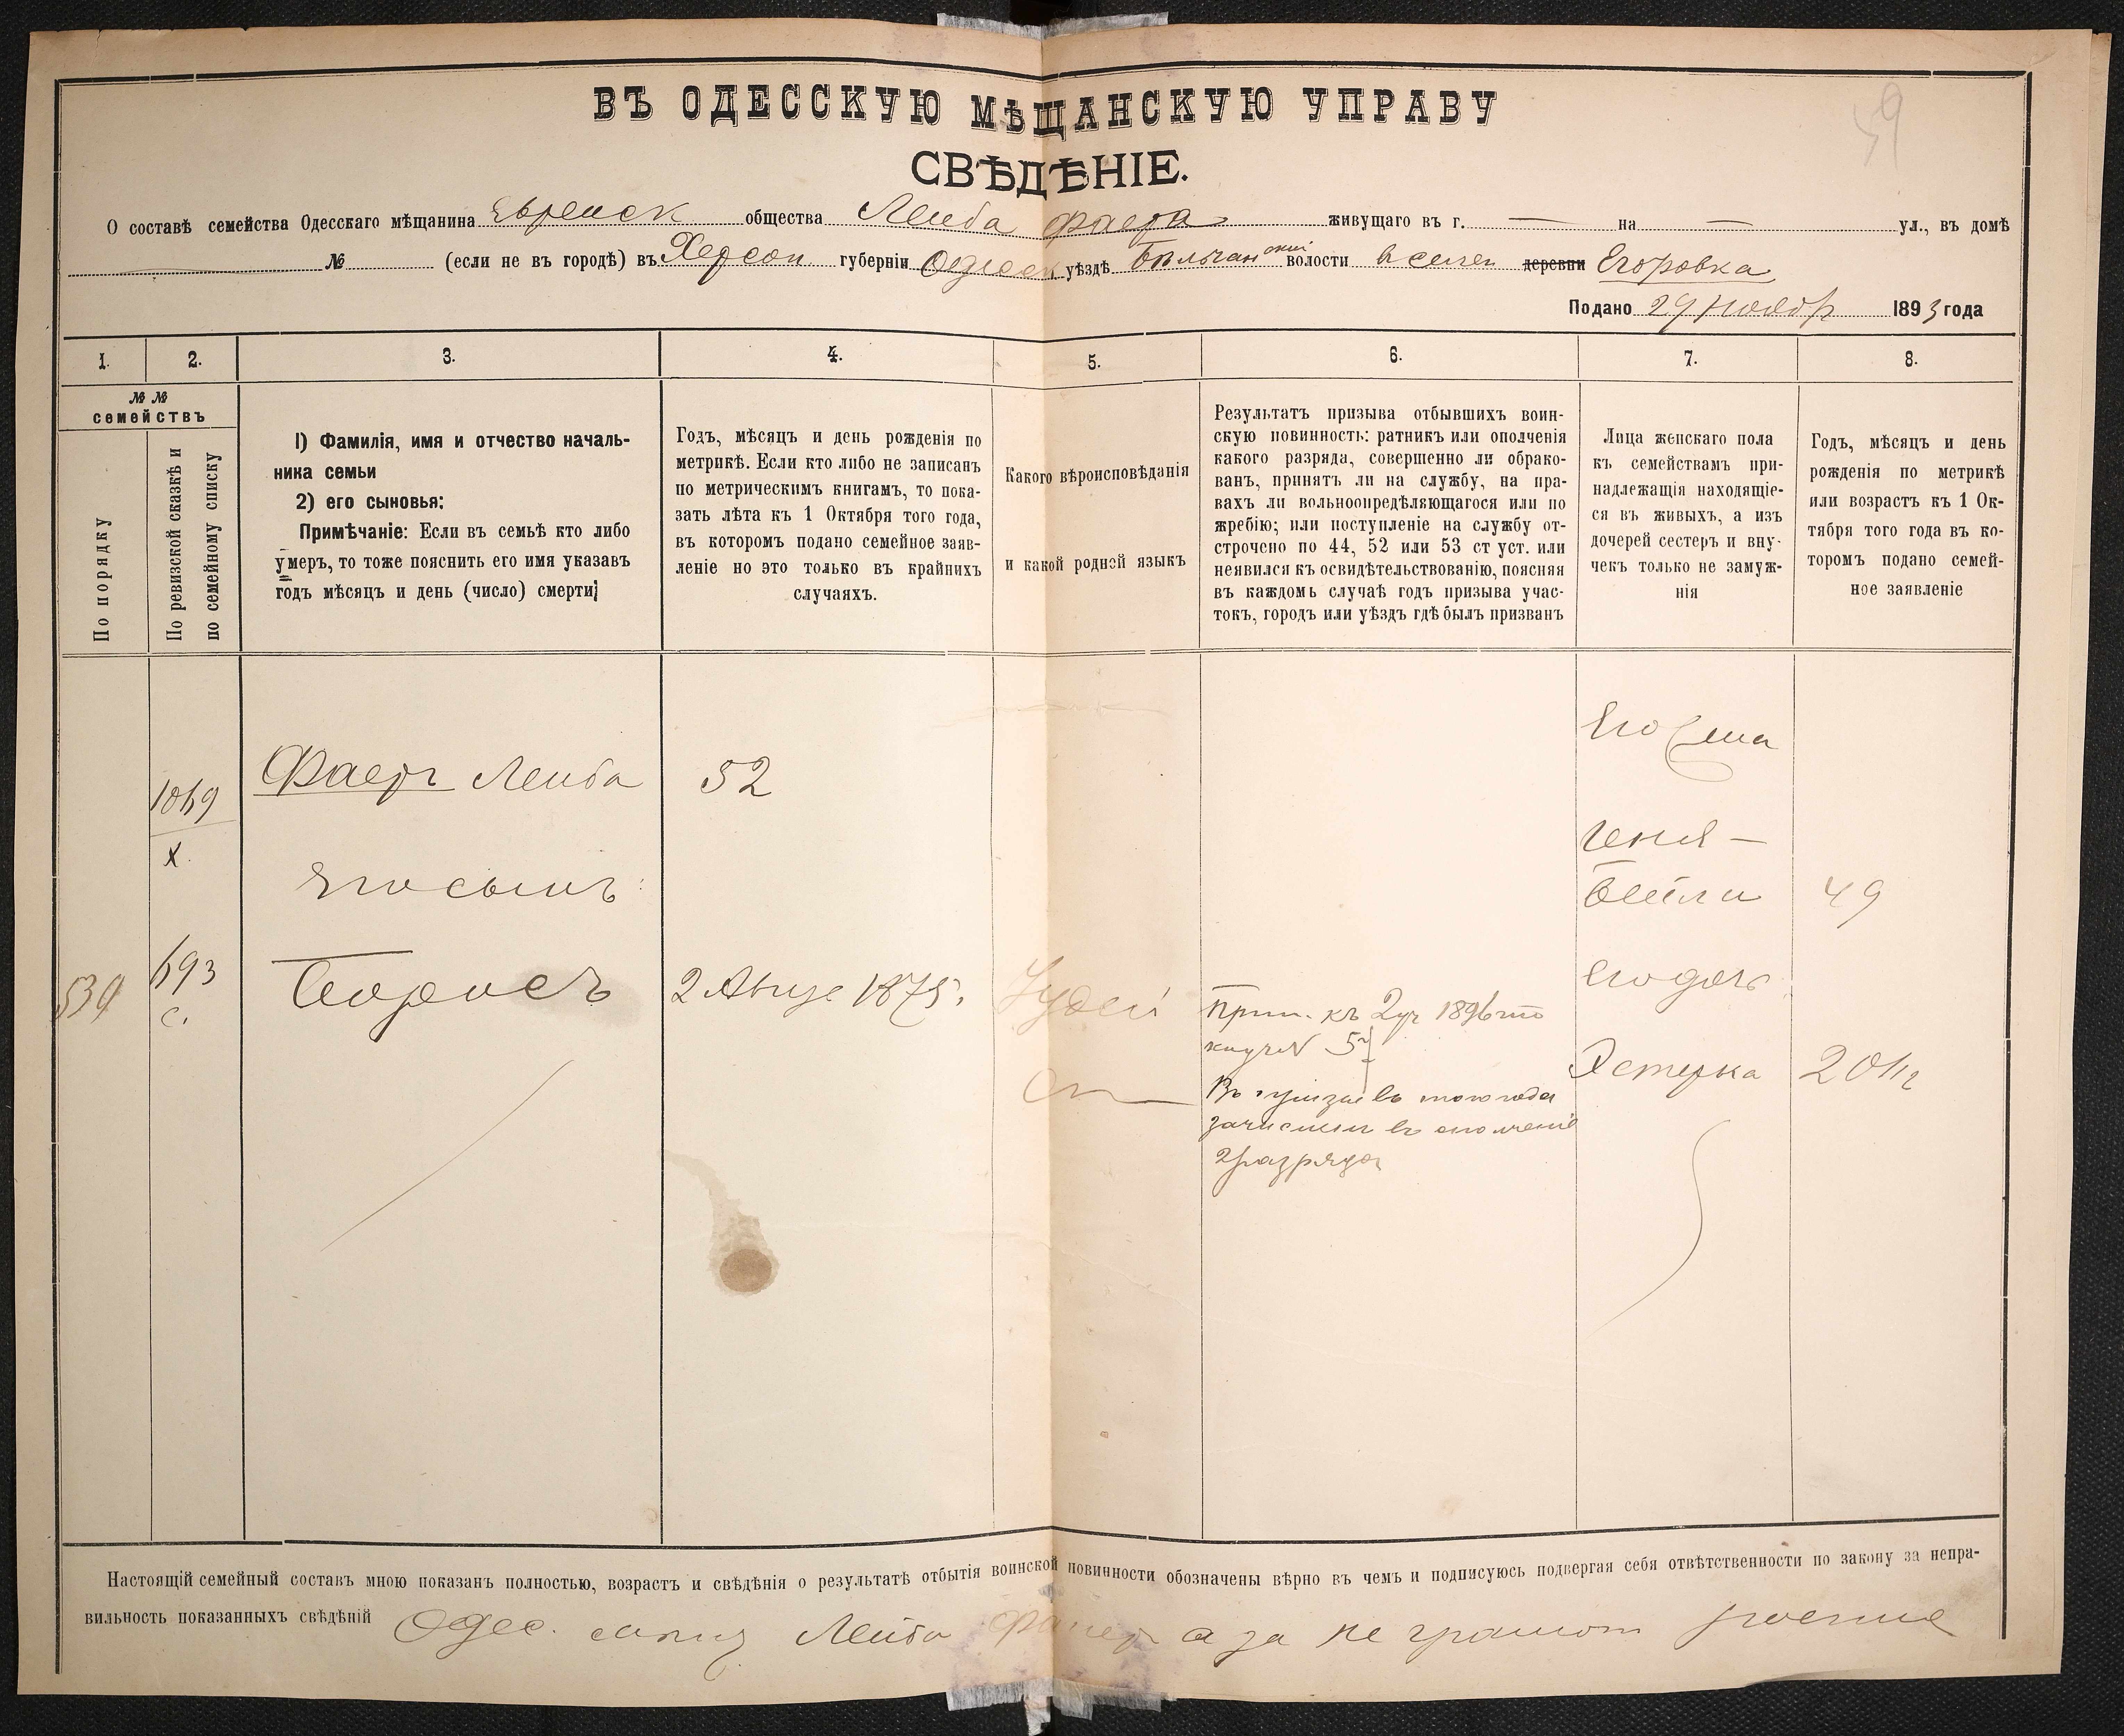 59
ВЪ ОДЕССКУЮ МѢЩАНСКУЮ УПРАВУ
СВѢДѢНІЕ.
О составѣ семейства Одесскаго мѣщанина Еврейск общества Лейба Фаера живущаго въ г. — на — ул., въ домѣ
№ (если не въ городѣ) въ Херсон. губерніи Одесск уѣздѣ Бѣльчанской волости в селен деревни Егоровка
Подано 29 Ноябр 1893 года
1. 2. 3. 4. 5. 6. 7. 8.
№ №
семействъ
По порядку
По ревизской сказкѣ и
по семейному списку
1) Фамилія, имя и отчество началь-
ника семьи
2) его сыновья:
Примѣчаніе: Если въ семьѣ кто либо
умеръ, то тоже пояснить его имя указавъ
годъ мѣсяцъ и день (число) смерти;
Годъ, мѣсяцъ и день рожденія по
метрикѣ. Если кто либо не записанъ
по метрическимъ книгамъ, то пока-
зать лѣта къ 1 Октября того года,
въ которомъ подано семейное заяв-
леніе но это только въ крайнихъ
случаяхъ.
Какого вѣроисповѣданія
и какой родной языкъ
Результатъ призыва отбывшихъ воин-
скую повинность: ратникъ или ополченія
какого разряда, совершенно ли обрако-
ванъ, принятъ ли на службу, на пра-
вахъ ли вольноопредѣляющагося или по
жребію; или поступленіе на службу от-
строчено по 44, 52 или 53 ст уст. или
неявился къ освидѣтельствованію, поясняя
въ каждомъ случаѣ годъ призыва учас-
токъ, городъ или уѣздъ гдѣ былъ призванъ
Лица женскаго пола
къ семействамъ при-
надлежащія находящіе-
ся въ живыхъ, а изъ
дочерей сестеръ и вну-
чекъ только не замуж-
нія
Годъ, мѣсяцъ и день
рожденія по метрикѣ
или возрастъ къ 1 Ок-
тября того года въ ко-
торомъ подано семей-
ное заявленіе
1069
х.
Фаеръ Лейба
52
Его сынъ:
539
693
с.
Борисъ
2 Авгус 1875.
Іудей
Прип. къ 2 уч 1896
№ 5
Въ призыв въ того года
зачислен въ ополченіе
2 разряда
Его жена
Геня —
Бейла
49
его дочь:
Эстерка
20
Настоящій семейный составъ мною показанъ полностью, возрастъ и свѣдѣнія о результатѣ отбытія воинской повинности обозначены вѣрно въ чемъ и подписуюсь подвергая себя отвѣтственности по закону за непра-
вильность показанныхъ свѣдѣній Одес. Лейба Фаер а за не грамот